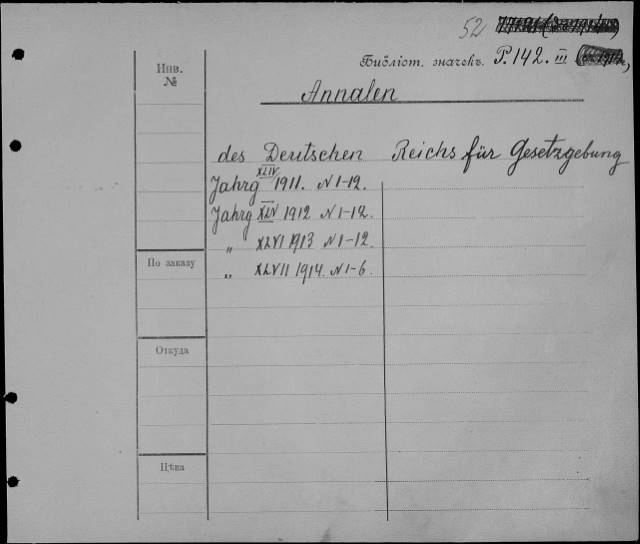 52
Инв. №
Библіот. значекъ. P. 142. III
Annalen
des Deutschen Reichs für Gesetzgebung
Jahrg XLIV 1911. N 1-12.
Jahrg XLV 1912 N 1-12.
„ XLVI 1913 N 1-12.
„ XLVII 1914. N 1-6.
По заказу
Откуда
Цѣна